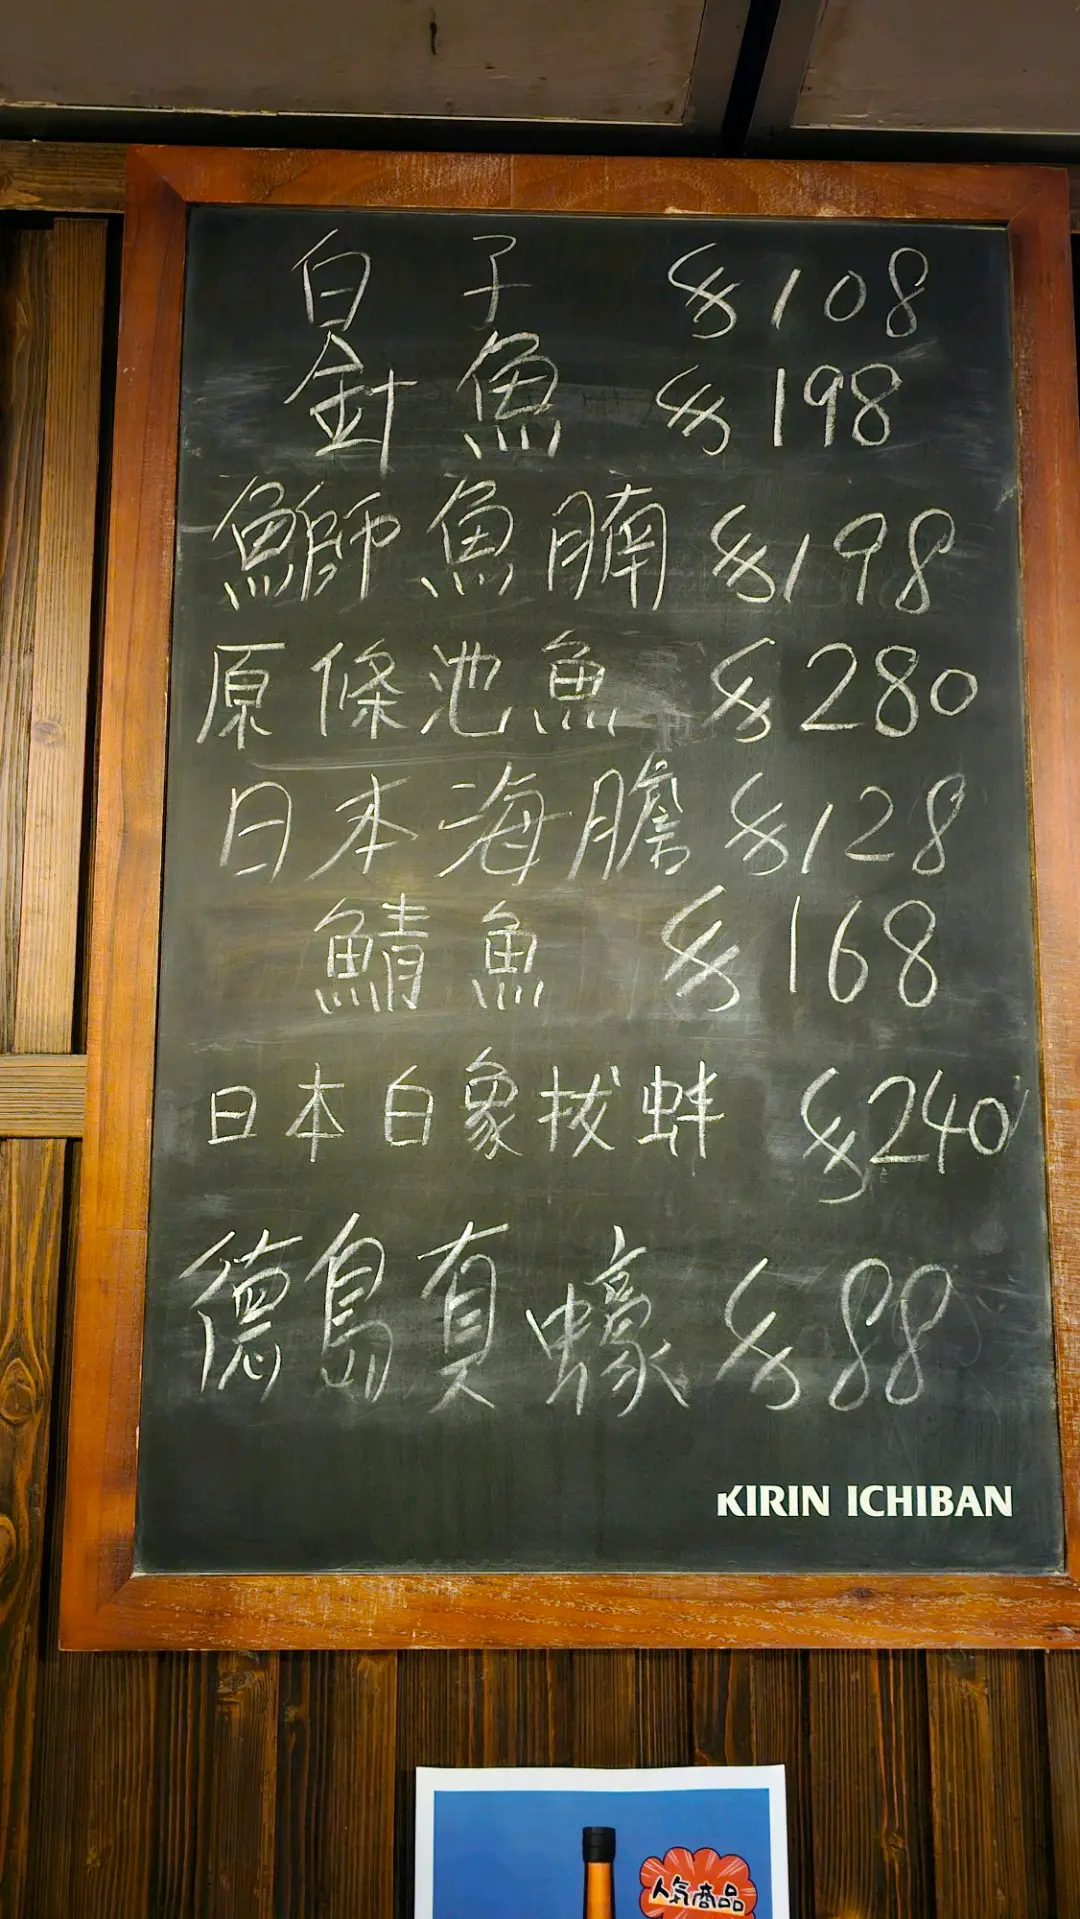 白子 $108
針魚 $198
鰤魚腩 $198
原條池魚 $280
日本海膽 $128
鯖魚 $168
日本白象拔蚌 $240
德島真蠔 $88
KIRIN ICHIBAN
人気商品